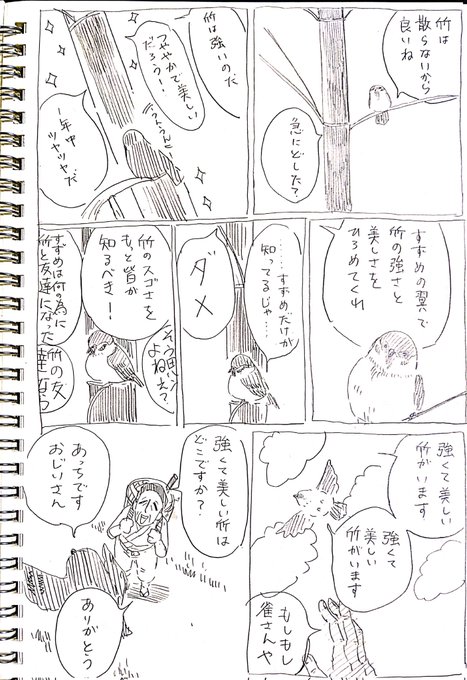 竹は
散らないから
良いね
急にどした？
竹は強いのだ
つややかで美しい
だろう！
うんうん
1年中
ツヤツヤだ
すずめの翼で
竹の強さと
美しさを
ひろめてくれ
……すずめだけが
知ってるじゃ……
ダメ
竹のスゴさを
もっと皆が
知るべき！
そう思う
よねぇ？
すずめは何の為に
竹と友達になった
竹の友
達なら
強くて美しい
竹がいます
強くて
美しい
竹がいます
もしもし
雀さんや
強くて美しい竹は
どこですか？
あっちです
おじいさん
ありがとう